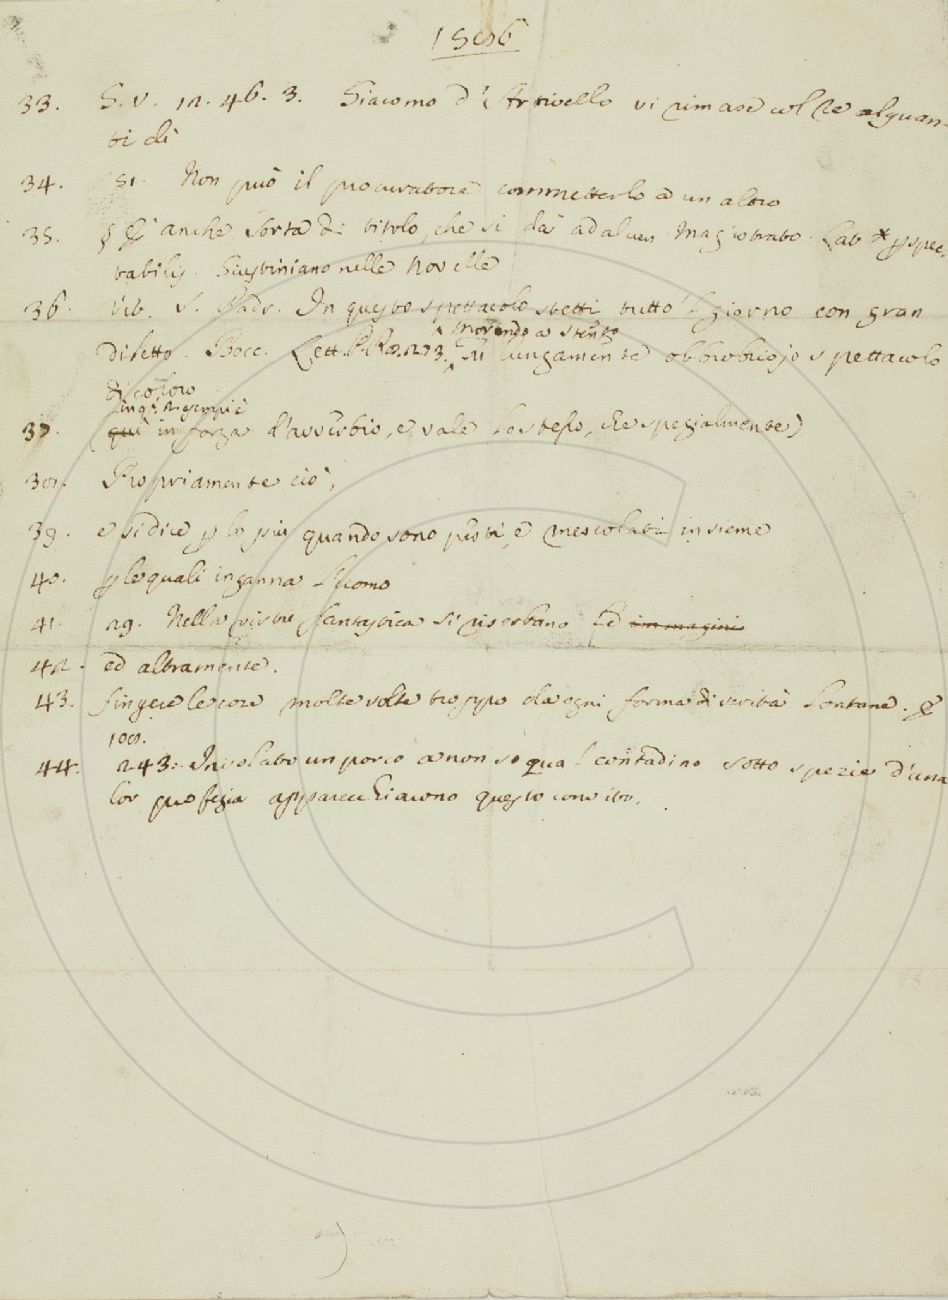 1806
33. G. V. 12. 46. 3. Giacomo d'Artivello vi rimase col Re alquan-
ti dì
34. 51. Non può il procuratore commetterlo a un altro
35. § È anche sorta di titolo, che si dà ad alcun Magistrato. Lat.
tabilis. Giustiniano nelle Novelle
36. Vit. S. Padr. In questo spettacolo stetti tutto 'l giorno con gran
morendo a stento
diletto. Bocc. Lett. lungamente obbrobrioso spettacolo
di coloro
37. (qui in forza d'avverbio, e vale lo stesso, che spezialmente)
38. Propriamente ciò,
39. e si dice p lo più quando sono pesti, e mescolati insieme
40. p le quali inganna l'uomo
41. 29. Nella virtù fantastica si riserbano Ed immagini
42. ed altramente.
43. fingere le cose molte volte troppo da ogni forma di verità lontane. È
100.
44. 243. Involato un porco a non so qual contadino sotto spezie d'una
lor apparecchiarono questo convito.